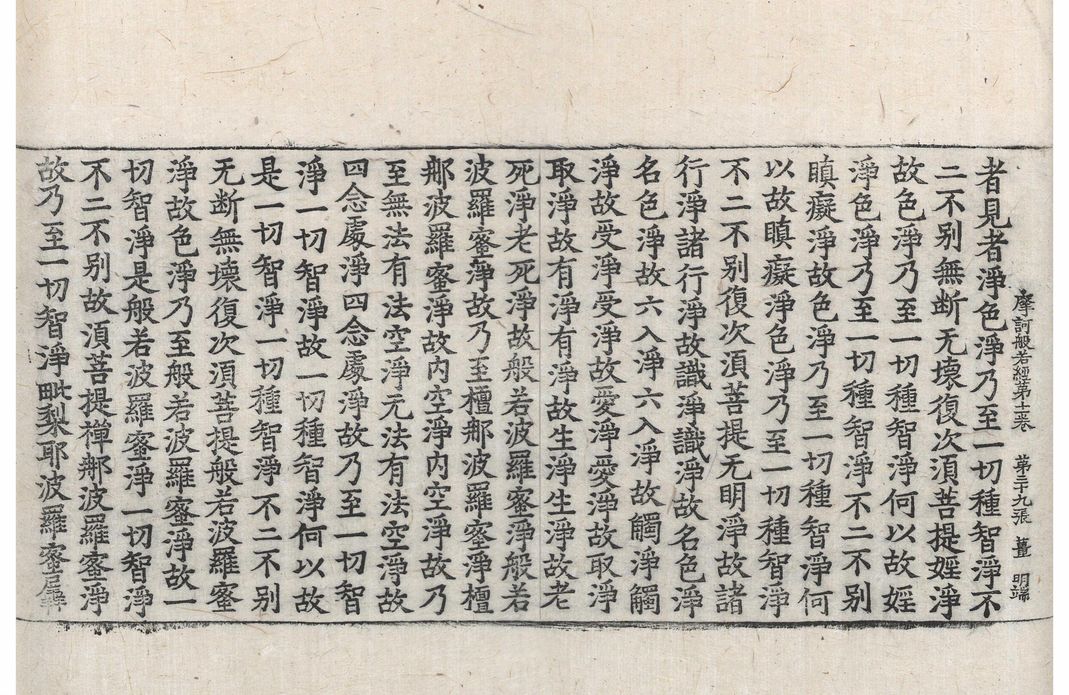 摩訶般若經第十一卷　第二十九張　薑　明端
者見者淨色淨乃至一切種智淨不
二不别無断无壊復次湏菩提婬淨
故色淨乃至一切種智淨何以故婬
淨色淨乃至一切種智淨不二不别
瞋癡淨故色淨乃至一切種智淨何
以故瞋癡淨色淨乃至一切種智淨
不二不别復次湏菩提无明淨故諸
行淨諸行淨故識淨識淨故名色淨
名色淨故六入淨六入淨故觸淨觸
淨故受淨受淨故愛淨愛淨故取淨
取淨故有淨有淨故生淨生淨故老
死淨老死淨故般若波羅蜜淨般若
波羅蜜淨故乃至檀那波羅蜜淨檀
那波羅蜜淨故内空淨内空淨故乃
至無法有法空淨无法有法空淨故
四念處淨四念處淨故乃至一切智
淨一切智淨故一切種智淨何以故
是一切智淨一切種智淨不二不别
无断無壊復次湏菩提般若波羅蜜
淨故色淨乃至般若波羅蜜淨故一
切智淨是般若波羅蜜淨一切智淨
不二不别故湏菩提禪那波羅蜜淨
故乃至一切智淨毗梨耶波羅蜜羼